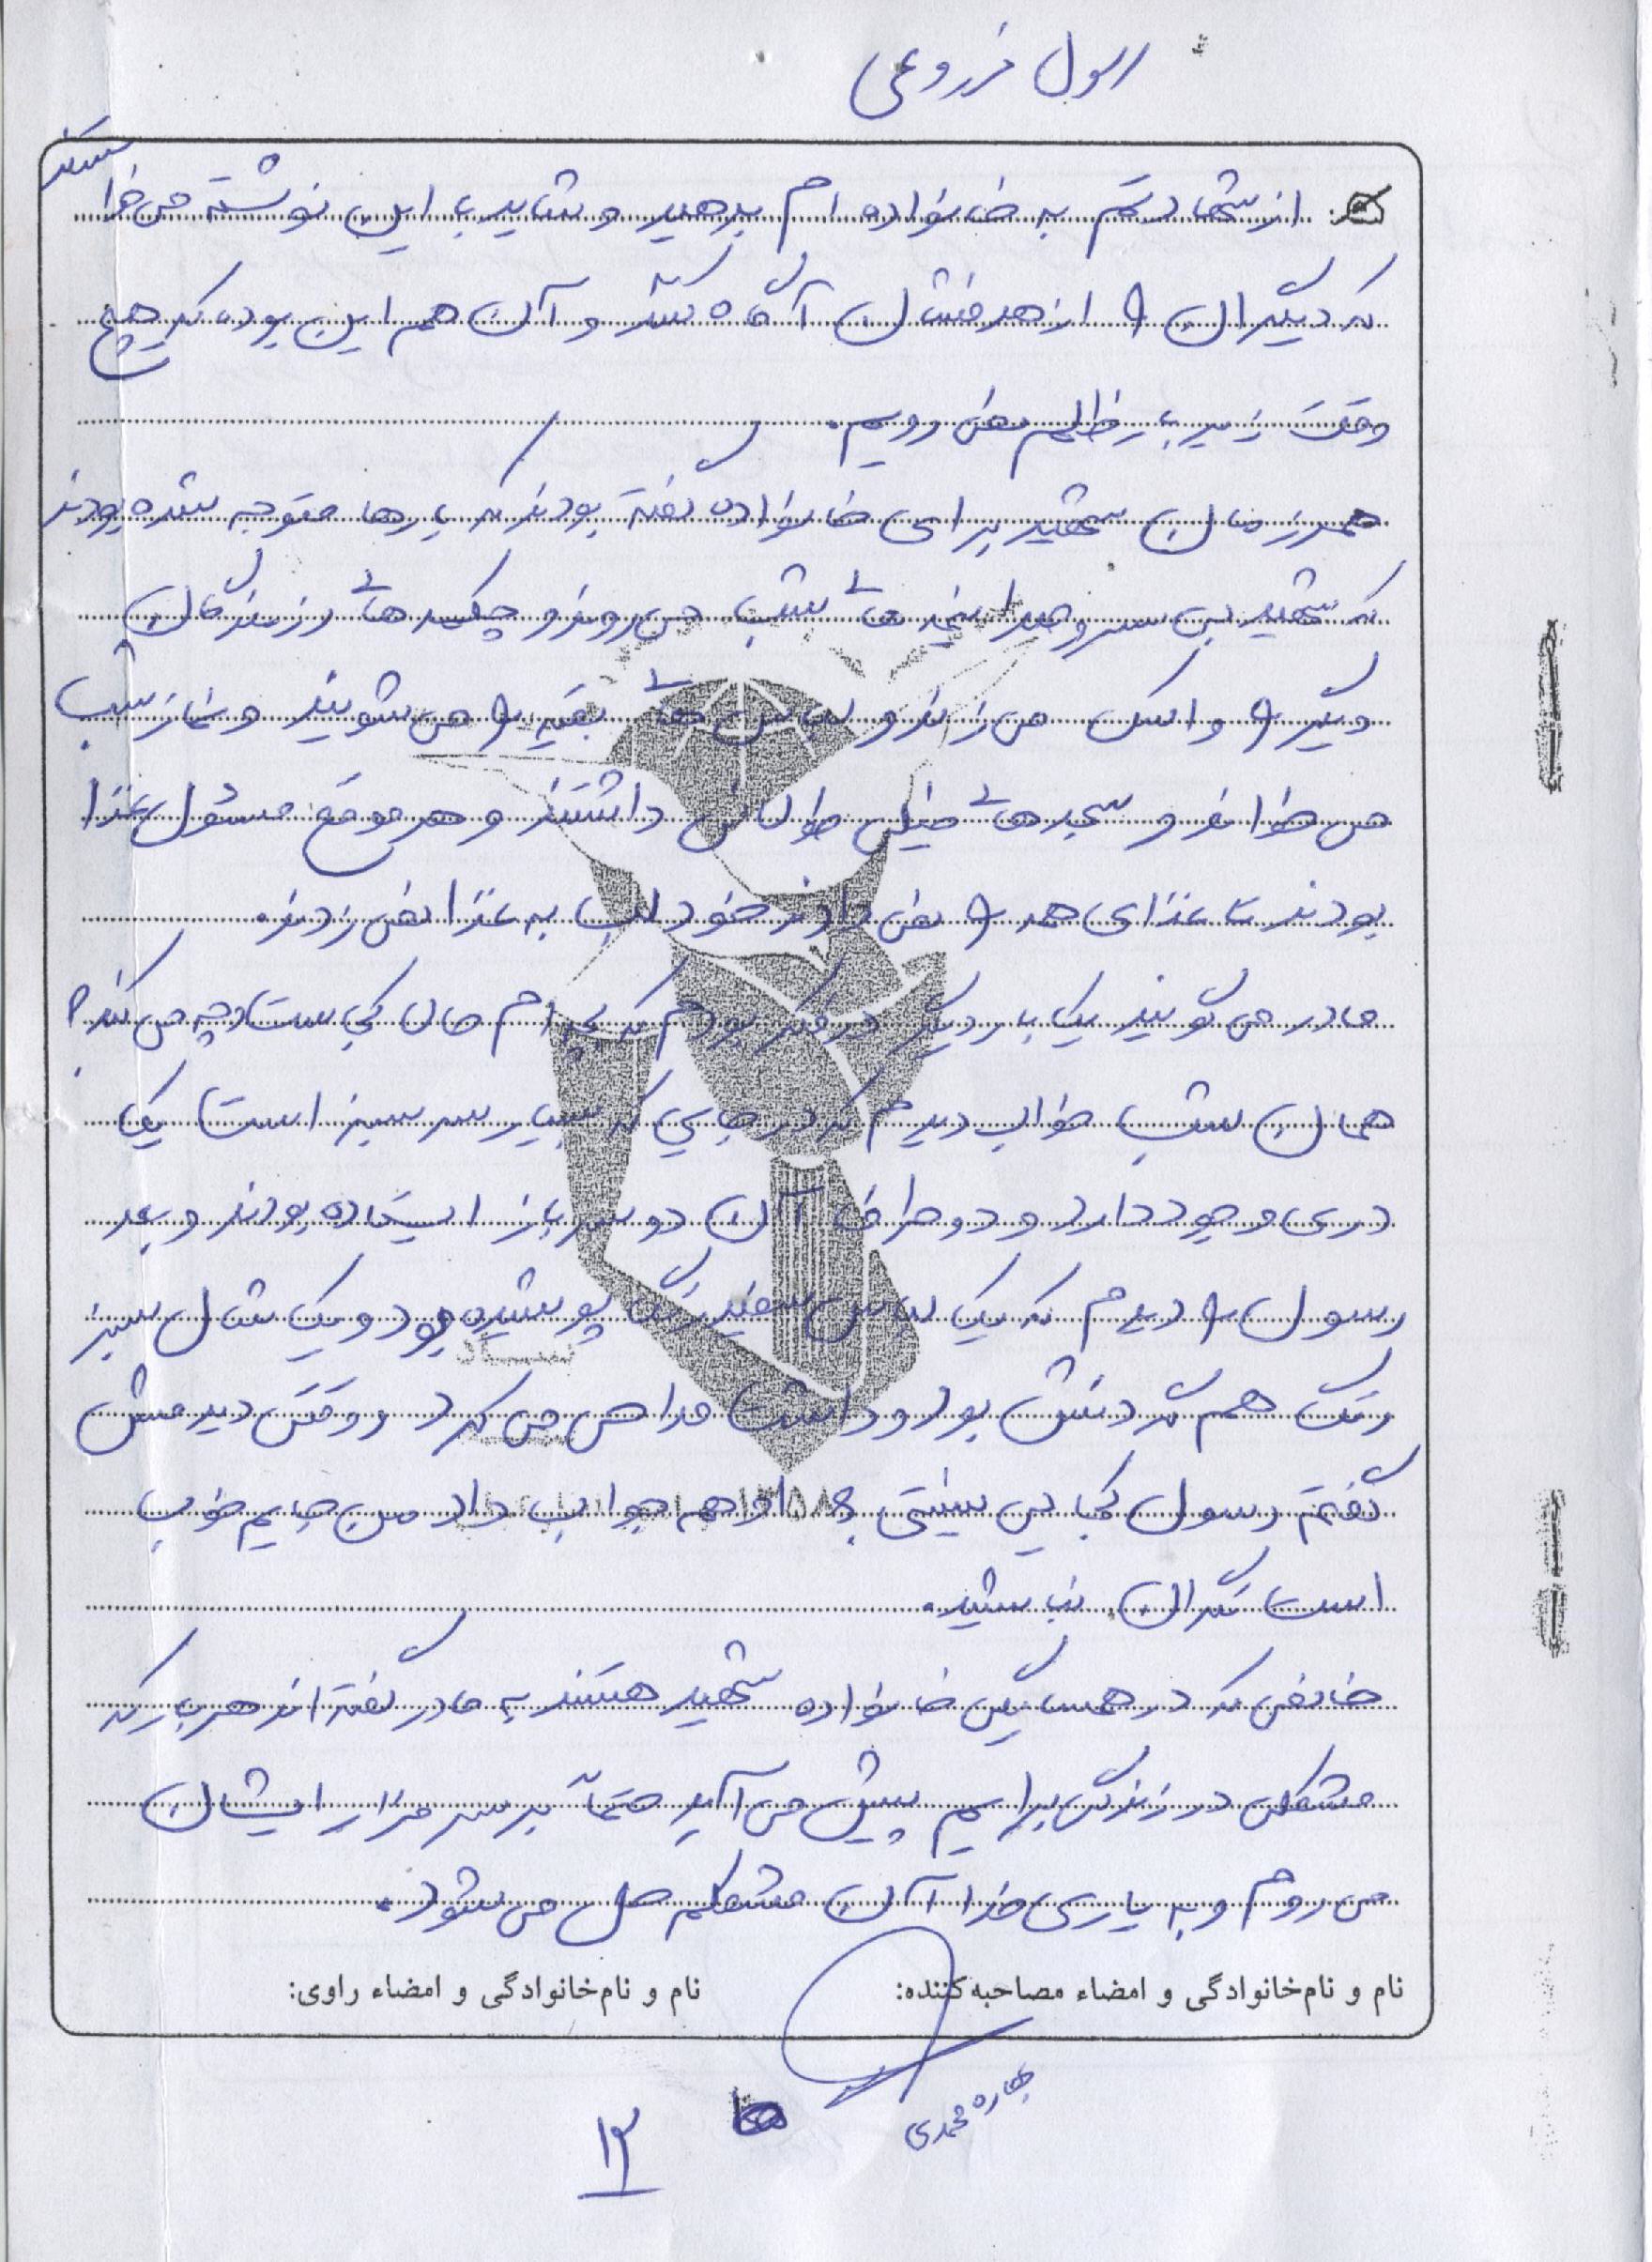 رسول فزروعی
از شهادتم به خانواده ام بدهید و شاید با این نوشته می خواستند
که دیگران را از هدفشان آگاه کنند و آن هم این بود، که هیچ
وقت زیر بار ظالم نمی رویم.
همرزمان شهید برای خانواده گفته بودند که بارها متوجه شده بودند
که شهید بی سر و صدا نیمه های شب می روند و چکمه های رزمندگان
دیگر را واکس می زنند و لباس های بقیه را می شویند و نماز شب
می خوانند و سجده های خیلی طولانی داشتند و هر موقع مسئول غذا
بودند تا غذای همه را نمی دادند خود لب به غذا نمی زدند.
مادر می گویند یک بار دیگر در فکر بودم که بچه ام حالا کجاست و چه می کند؟
همان شب خواب دیدم که در جایی که بسیار سرسبز است یک
دری وجود دارد و دو طرف آن دو سرباز ایستاده بودند و بعد
رسول را دیدم که یک لباس سفید رنگ پوشیده بود و یک شال سبز
رنگ هم گردنش بود و داشت مداحی می کرد و وقتی دیدمش
گفتم رسول کجایی نیستی؟ او هم جواب داد من جایم خوب
است نگران نباشید.
خانمی که در همسایگی خانواده شهید هستند به مادر گفته اند هر بار که
مشکلی در زندگی برایم پیش می آید حتماً بر سر مزار ایشان
می روم و به یاری خدا آن مشکلم حل می شود.
نام و نام‌خانوادگی و امضاء مصاحبه‌کننده: نام و نام‌خانوادگی و امضاء راوی:
بهاره محمدی
۱۲